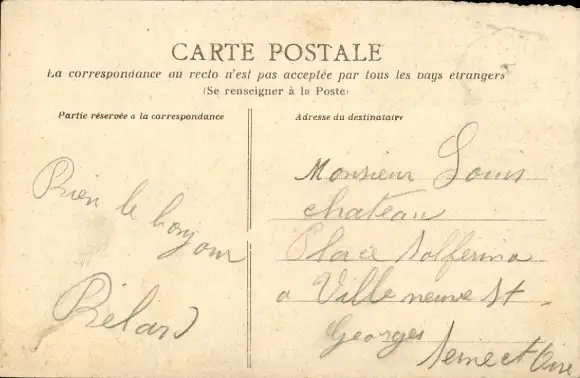 CARTE POSTALE
La correspondance au recto n'est pas acceptée par tous les pays étrangers
(Se renseigner à la Poste)
Partie réservée à la correspondance
Adresse du destinataire
Bien le bonjour
Bélard
Monsieur Louis
chateau
Place Solferino
a Villeneuve St
Georges
Seine et Oise